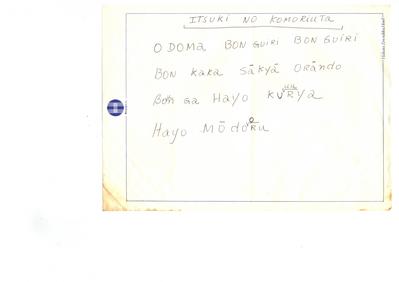 ITSUKI NO KOMORIUTA
O DOMA BON GUIRI BON GUIRI
BON KAKA SĀKYĀ ORĀNDO
BON GA HAYO KŪRYA
HAYO MŌDORU